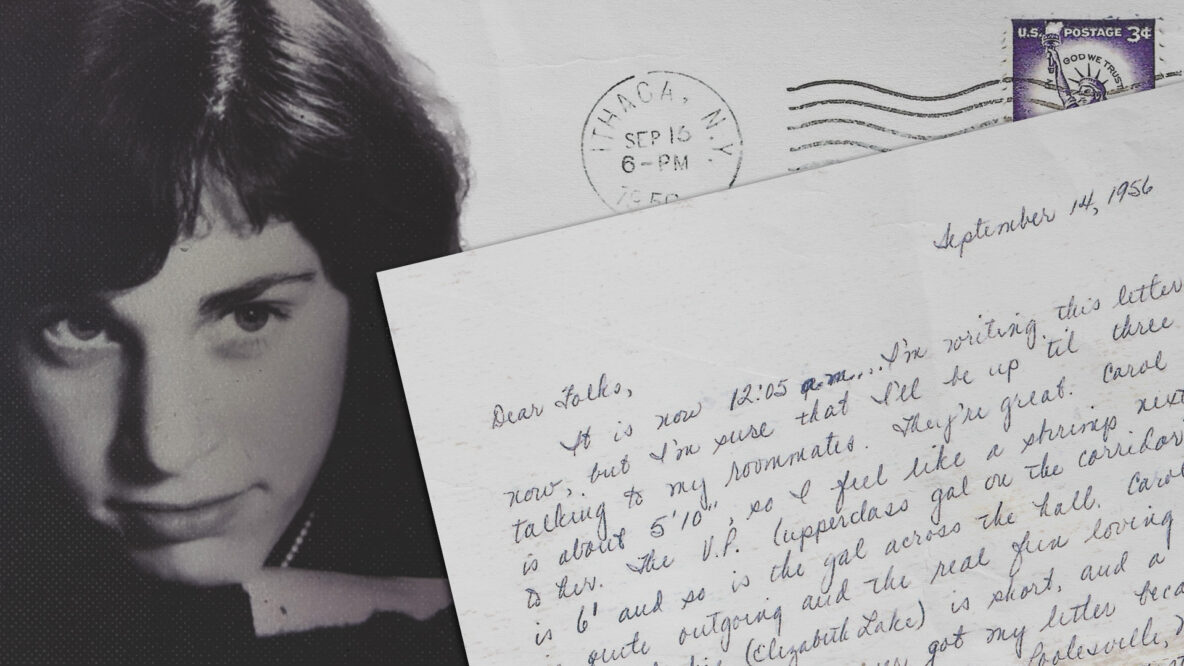 U.S. POSTAGE 3¢
GOD WE TRUST
ITHACA, N.Y.
SEP 15
6-PM
September 14, 1956
Dear Folks,
It is now 12:05 a.m....I'm writing this letter
now, but I'm sure that I'll be up 'til three
talking to my roommates. They're great. Carol
is about 5'10", so I feel like a shrimp next
to her. The V.P. (upperclass gal on the corridor)
is 6' and so is the gal across the hall. Carol
quite outgoing and the real fun loving
(Elizabeth Lake) is short, and a
got my letter beca
Poolesville,